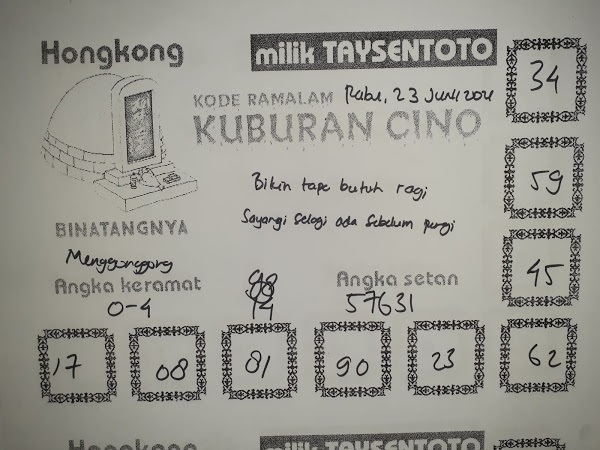 Hongkong
milik TAYSENTOTO
34
KODE RAMALAM Rabu, 23 Juni 2021
KUBURAN CINO
59
Bikin tape butuh ragi
Sayangi selagi ada sebelum pergi
BINATANGNYA
Menggonggong
45
Angka keramat
Angka setan
0-4
14
57631
17
08
81
90
23
62
Hongkong
milik TAYSENTOTO